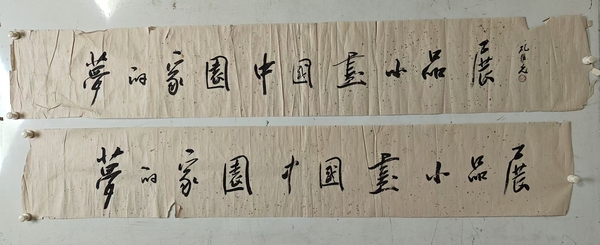 夢的家園中國畫小品展
夢的家園中國畫小品展